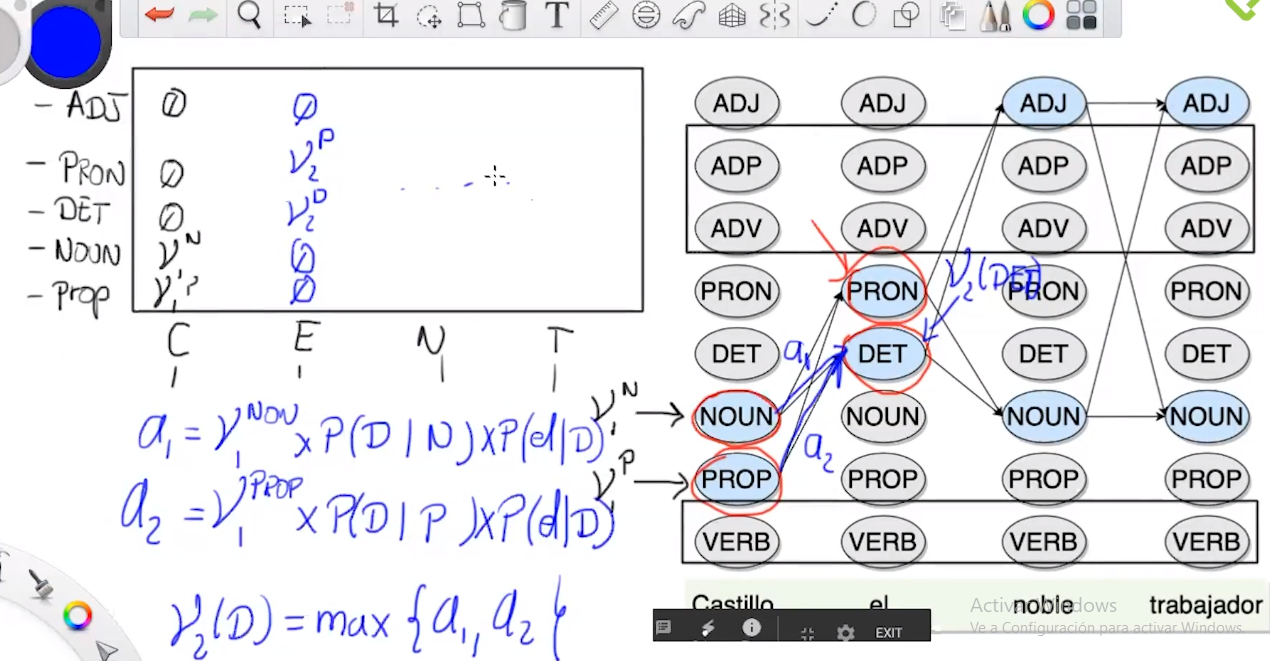 - ADJ 0 0
- PRON 0 ν₂ᴾ
- DET 0 ν₂ᴰ
- NOUN ν₁ᴺ 0
- Prop ν₁ᴾ 0
C E N T
a₁ = ν₁ᴺᴼᵁᴺ x P(D|N) x P(el|D)
a₂ = ν₁ᴾᴿᴼᴾ x P(D|P) x P(el|D)
ν₂(D) = max {a₁, a₂}
ADJ ADJ ADJ ADJ
ADP ADP ADP ADP
ADV ADV ADV ADV
PRON PRON PRON PRON
ν₂(DET)
DET DET DET DET
a₁
ν₁ᴺ
NOUN NOUN NOUN NOUN
a₂
ν₁ᴾ
PROP PROP PROP PROP
VERB VERB VERB VERB
Castillo el noble trabajador
Activar Windows
Ve a Configuración para activar Windows.
EXIT